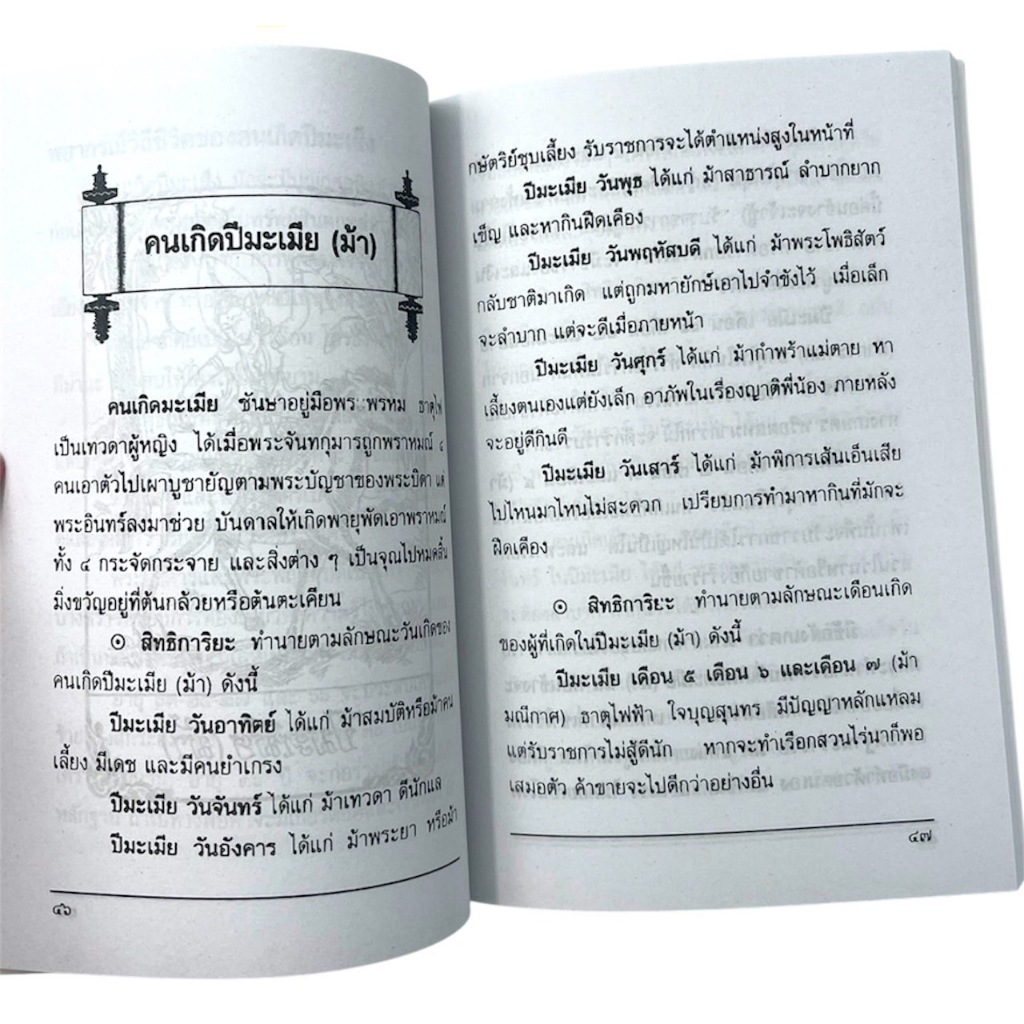 คนเกิดปีมะเมีย (ม้า)
คนเกิดมะเมีย ชันษาอยู่มือพระพรหม ธาตุไฟ
เป็นเทวดาผู้หญิง ได้เมื่อพระจันทกุมารถูกพราหมณ์ ๔
คนเอาตัวไปเผาบูชายัญตามพระบัญชาของพระบิดา แต่
พระอินทร์ลงมาช่วย บันดาลให้เกิดพายุพัดเอาพราหมณ์
ทั้ง ๔ กระจัดกระจาย และสิ่งต่าง ๆ เป็นจุณไปหมดสิ้น
มิ่งขวัญอยู่ที่ต้นกล้วยหรือต้นตะเคียน
⊙ สิทธิการิยะ ทำนายตามลักษณะวันเกิดของ
คนเกิดปีมะเมีย (ม้า) ดังนี้
ปีมะเมีย วันอาทิตย์ ได้แก่ ม้าสมบัติหรือม้าคน
เลี้ยง มีเดช และมีคนยำเกรง
ปีมะเมีย วันจันทร์ ได้แก่ ม้าเทวดา ดีนักแล
ปีมะเมีย วันอังคาร ได้แก่ ม้าพระยา หรือม้า
๔๖
กษัตริย์ชุบเลี้ยง รับราชการจะได้ตำแหน่งสูงในหน้าที่
ปีมะเมีย วันพุธ ได้แก่ ม้าสาธารณ์ ลำบากยาก
เข็ญ และหากินฝืดเคือง
ปีมะเมีย วันพฤหัสบดี ได้แก่ ม้าพระโพธิสัตว์
กลับชาติมาเกิด แต่ถูกมหายักษ์เอาไปจำขังไว้ เมื่อเล็ก
จะลำบาก แต่จะดีเมื่อภายหน้า
ปีมะเมีย วันศุกร์ ได้แก่ ม้ากำพร้าแม่ตาย หา
เลี้ยงตนเองแต่ยังเล็ก อาภัพในเรื่องญาติพี่น้อง ภายหลัง
จะอยู่ดีกินดี
ปีมะเมีย วันเสาร์ ได้แก่ ม้าพิการเส้นเอ็นเสีย
ไปไหนมาไหนไม่สะดวก เปรียบการทำมาหากินที่มักจะ
ฝืดเคือง
⊙ สิทธิการิยะ ทำนายตามลักษณะเดือนเกิด
ของผู้ที่เกิดในปีมะเมีย (ม้า) ดังนี้
ปีมะเมีย เดือน ๕ เดือน ๖ และเดือน ๗ (ม้า
มณีกาศ) ธาตุไฟฟ้า ใจบุญสุนทร มีปัญญาหลักแหลม
แต่รับราชการไม่สู้ดีนัก หากจะทำเรือกสวนไร่นาก็พอ
เสมอตัว ค้าขายจะไปดีกว่าอย่างอื่น
๔๗